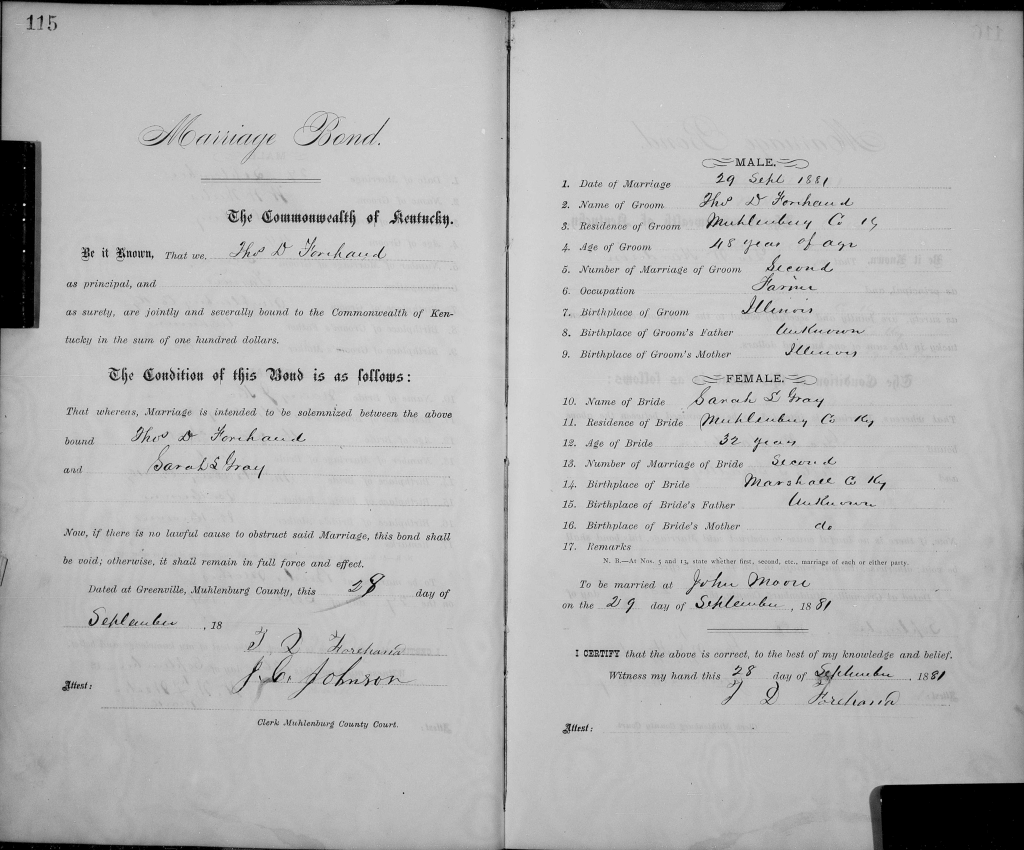 115
Marriage Bond.
The Commonwealth of Kentucky.
Be it Known, That we, Thos D Forehand
as principal, and
as surety, are jointly and severally bound to the Commonwealth of Ken-
tucky in the sum of one hundred dollars.
The Condition of this Bond is as follows:
That whereas, Marriage is intended to be solemnized between the above
bound Thos D Forehand
and Sarah L Gray
Now, if there is no lawful cause to obstruct said Marriage, this bond shall
be void; otherwise, it shall remain in full force and effect.
Dated at Greenville, Muhlenburg County, this 28 day of
September , 18
T D Forehand
J. C. Johnson
Attest:
Clerk Muhlenburg County Court.
MALE.
1. Date of Marriage 29 Sept 1881
2. Name of Groom Thos D Forehand
3. Residence of Groom Muhlenburg Co Ky
4. Age of Groom 48 years of age
5. Number of Marriage of Groom Second
6. Occupation Farmer
7. Birthplace of Groom Illinois
8. Birthplace of Groom's Father Unknown
9. Birthplace of Groom's Mother Illinois
FEMALE.
10. Name of Bride Sarah L Gray
11. Residence of Bride Muhlenburg Co Ky
12. Age of Bride 32 years
13. Number of Marriage of Bride Second
14. Birthplace of Bride Marshall Co Ky
15. Birthplace of Bride's Father Unknown
16. Birthplace of Bride's Mother do
17. Remarks
N. B.—At Nos. 5 and 13, state whether first, second, etc., marriage of each or either party.
To be married at John Moore
on the 29 day of September , 1881
I CERTIFY that the above is correct, to the best of my knowledge and belief.
Witness my hand this 28 day of September , 1881
T D Forehand
Attest: